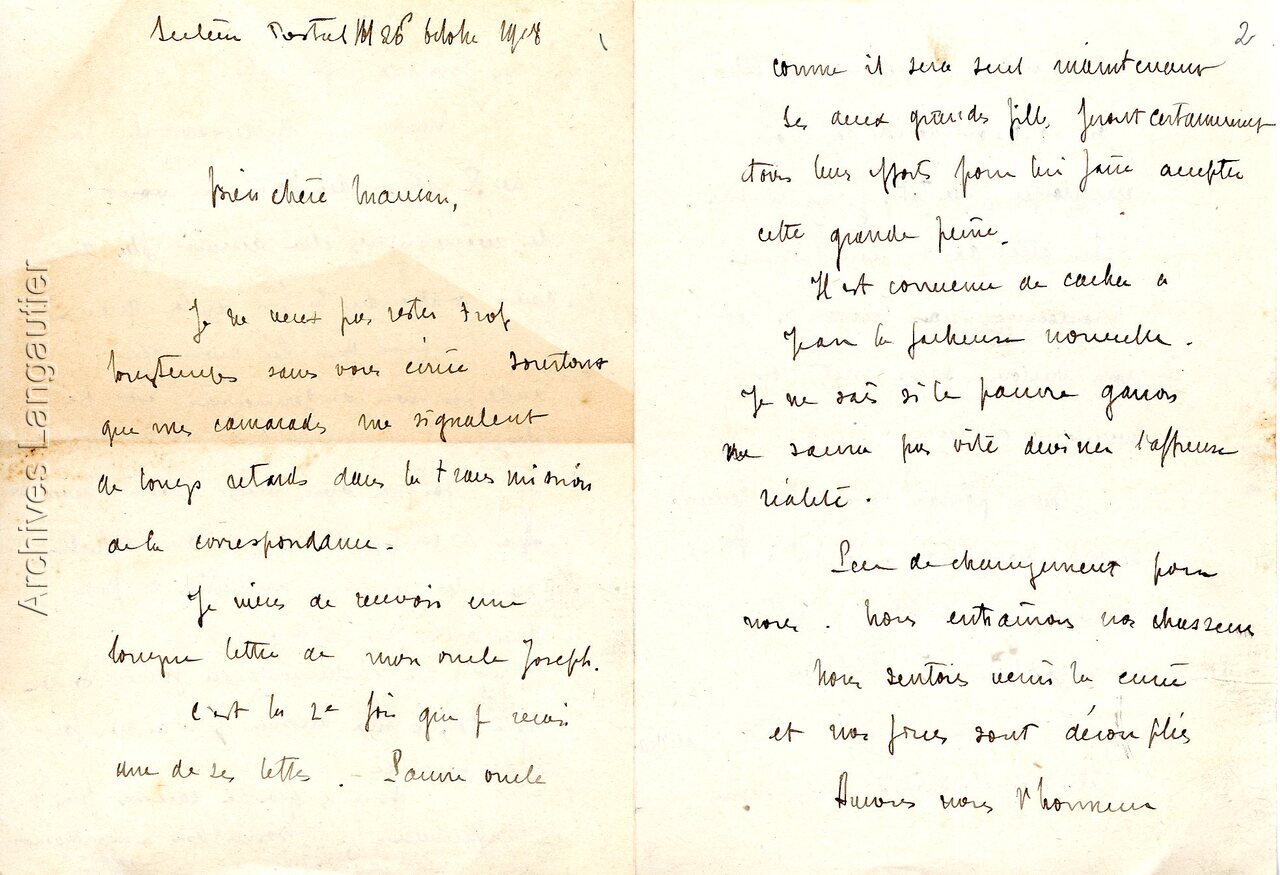 Secteur Postal 111 26 octobre 1918
1
Bien chère Maman,
Je ne veux pas rester trop
longtemps sans vous écrire surtout
que mes camarades me signalent
de longs retards dans la transmission
de la correspondance.
Je viens de recevoir une
longue lettre de mon oncle Joseph.
C'est la 2e fois que je reçois
une de ses lettres. - Pauvre oncle
2
comme il sera seul maintenant
Ses deux grandes fille feront certainement
tous leurs efforts pour lui faire accepter
cette grande peine.
Il est convenu de cacher a
Jean la facheuse nouvelle.
Je ne sais si le pauvre garçon
ne saura pas vite deviner l'affreuse
réalité.
Peu de changement pour
nous. Nous entraînons nos chasseurs
Nous sentons venir la curée
et nos forces sont décuplées
Aurons nous l'honneur
Archives Langautier